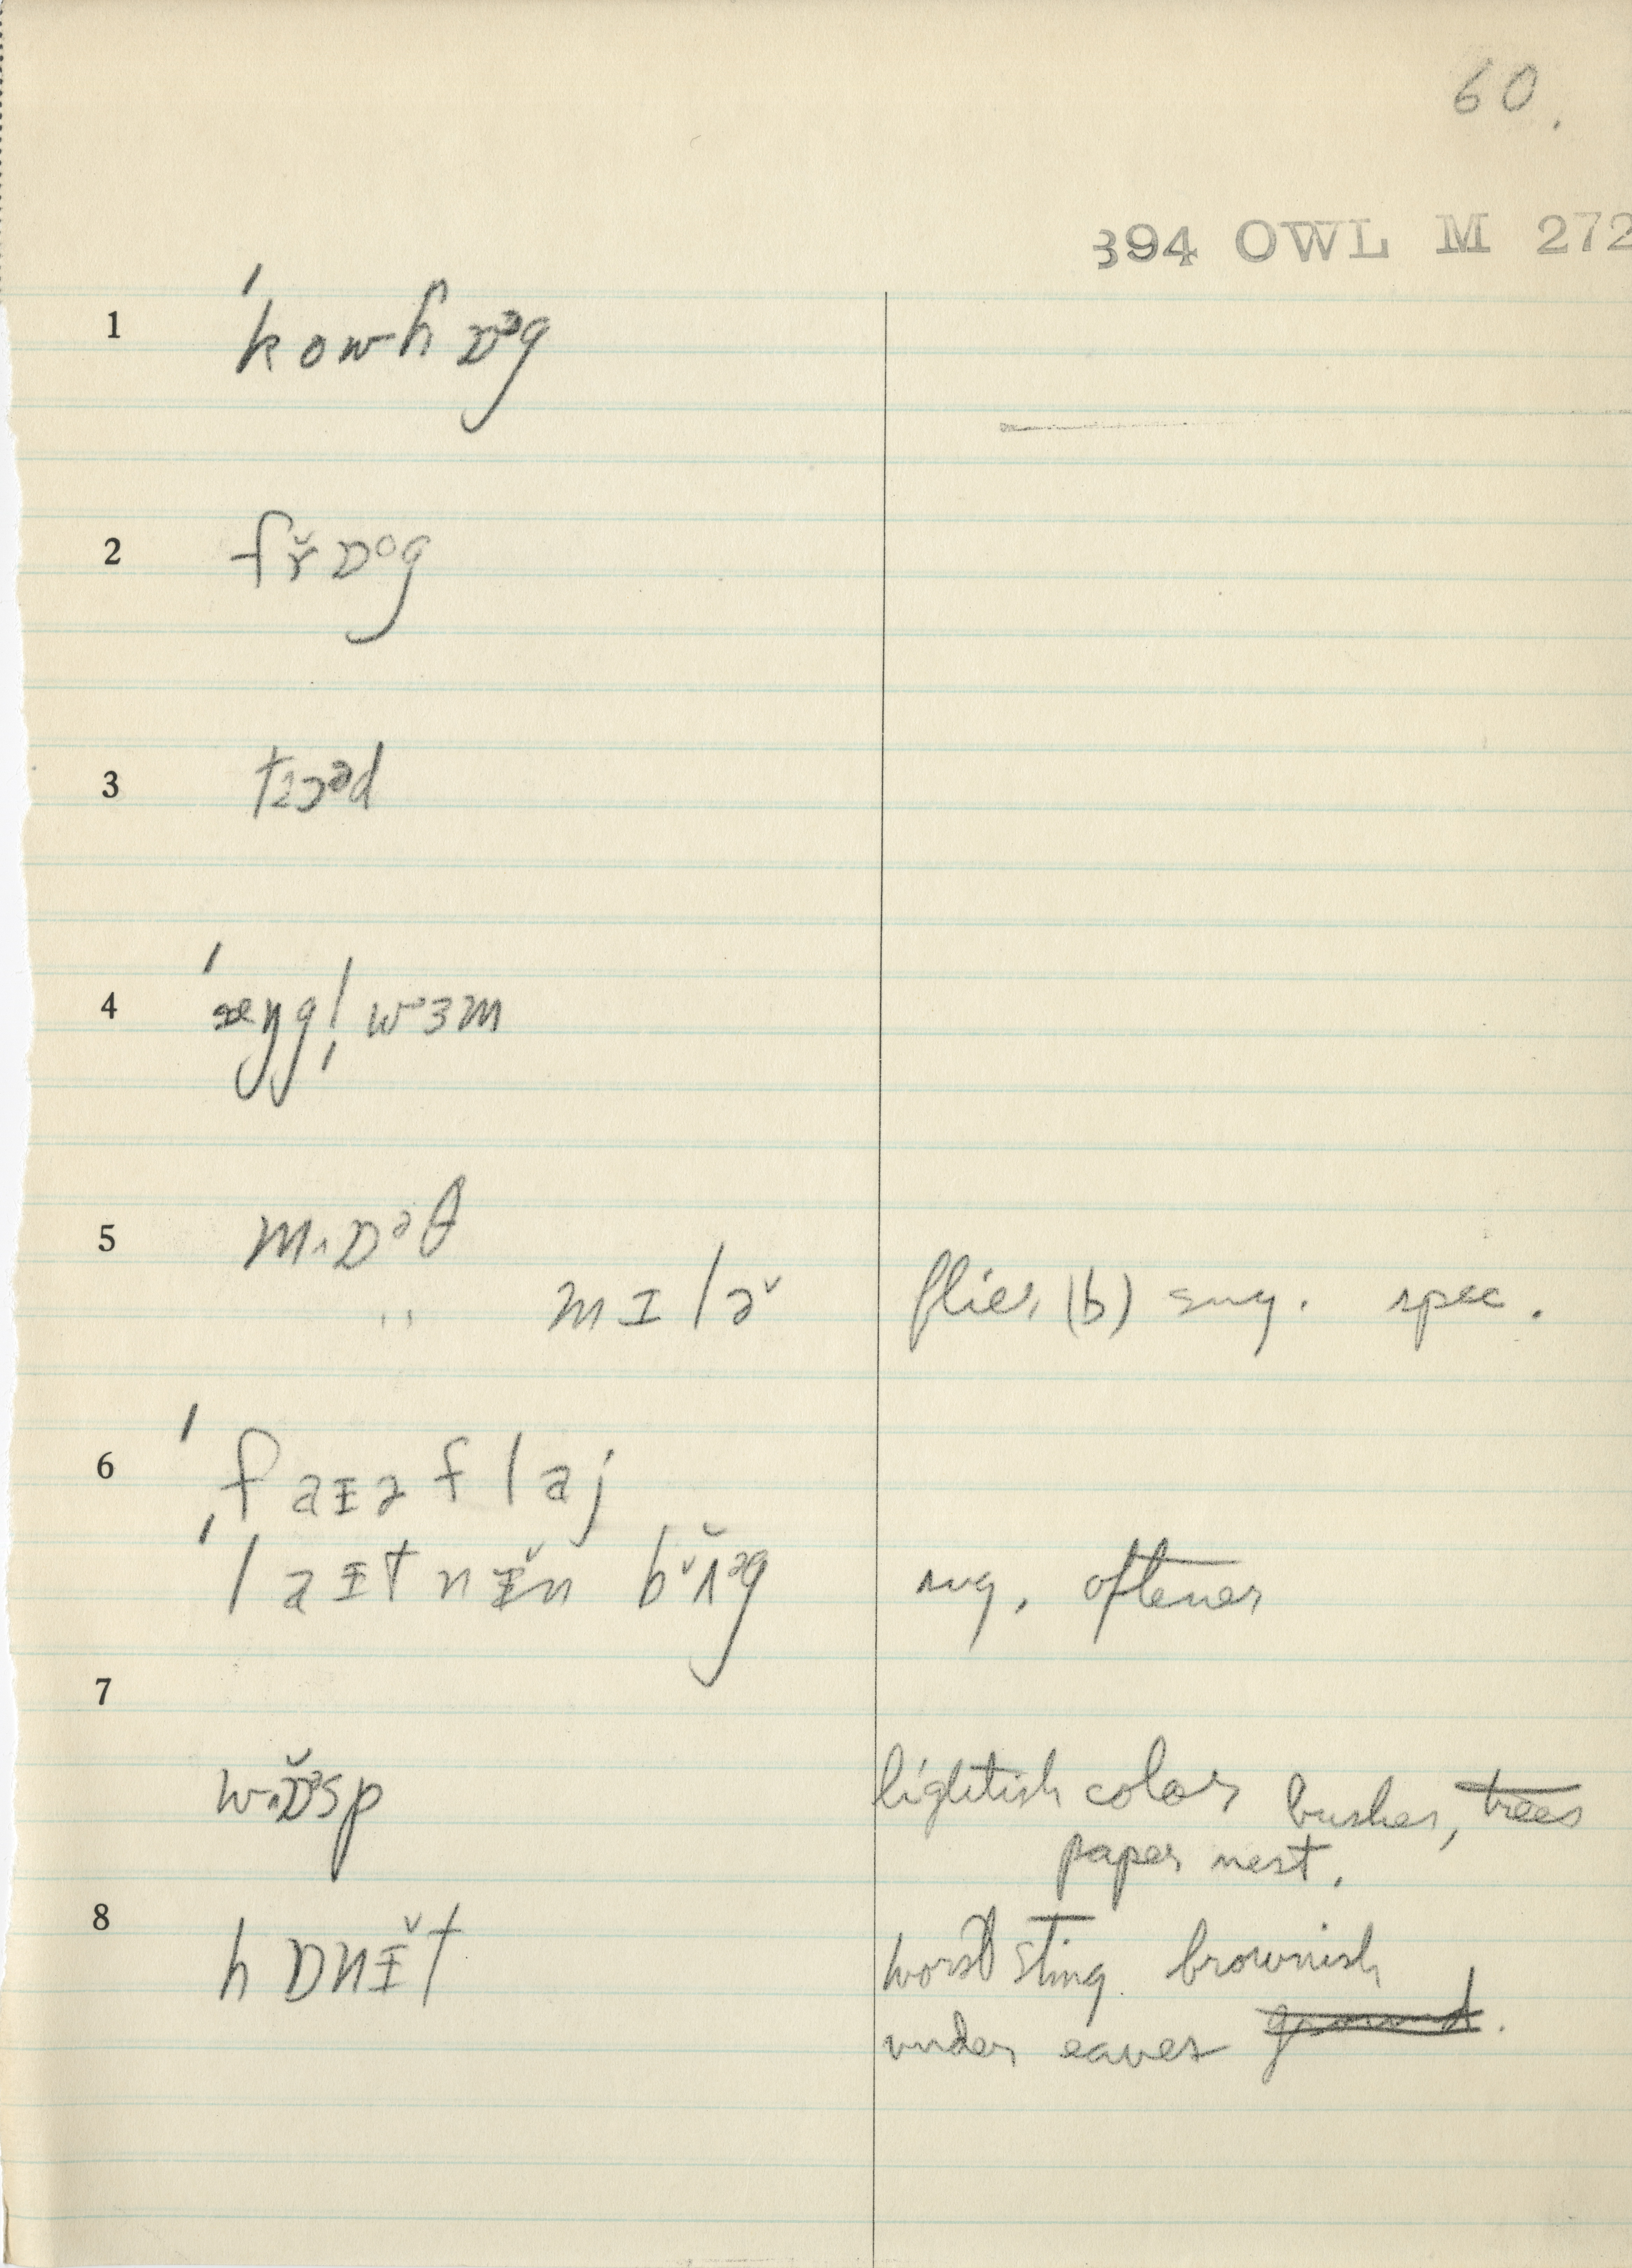 60.
394 OWL M 272
1 ˈkowɦɒᵊg
2 fř̬ɒᵒg
3 tɔᵊd
4 ˈæŋgl̩wɜm
5 mɒᵊθ
" mɪlə̌ flies (b) sug. spec.
6 ˈfaɪəflaj
ˈlaɪtnɪ̌n bʌ̌ᵊg sug. oftener
7
wɒ̌ᵊsp lightish color bushes, trees
paper nest.
8 hɒnɪ̌t worst sting brownish
under eaves ground.